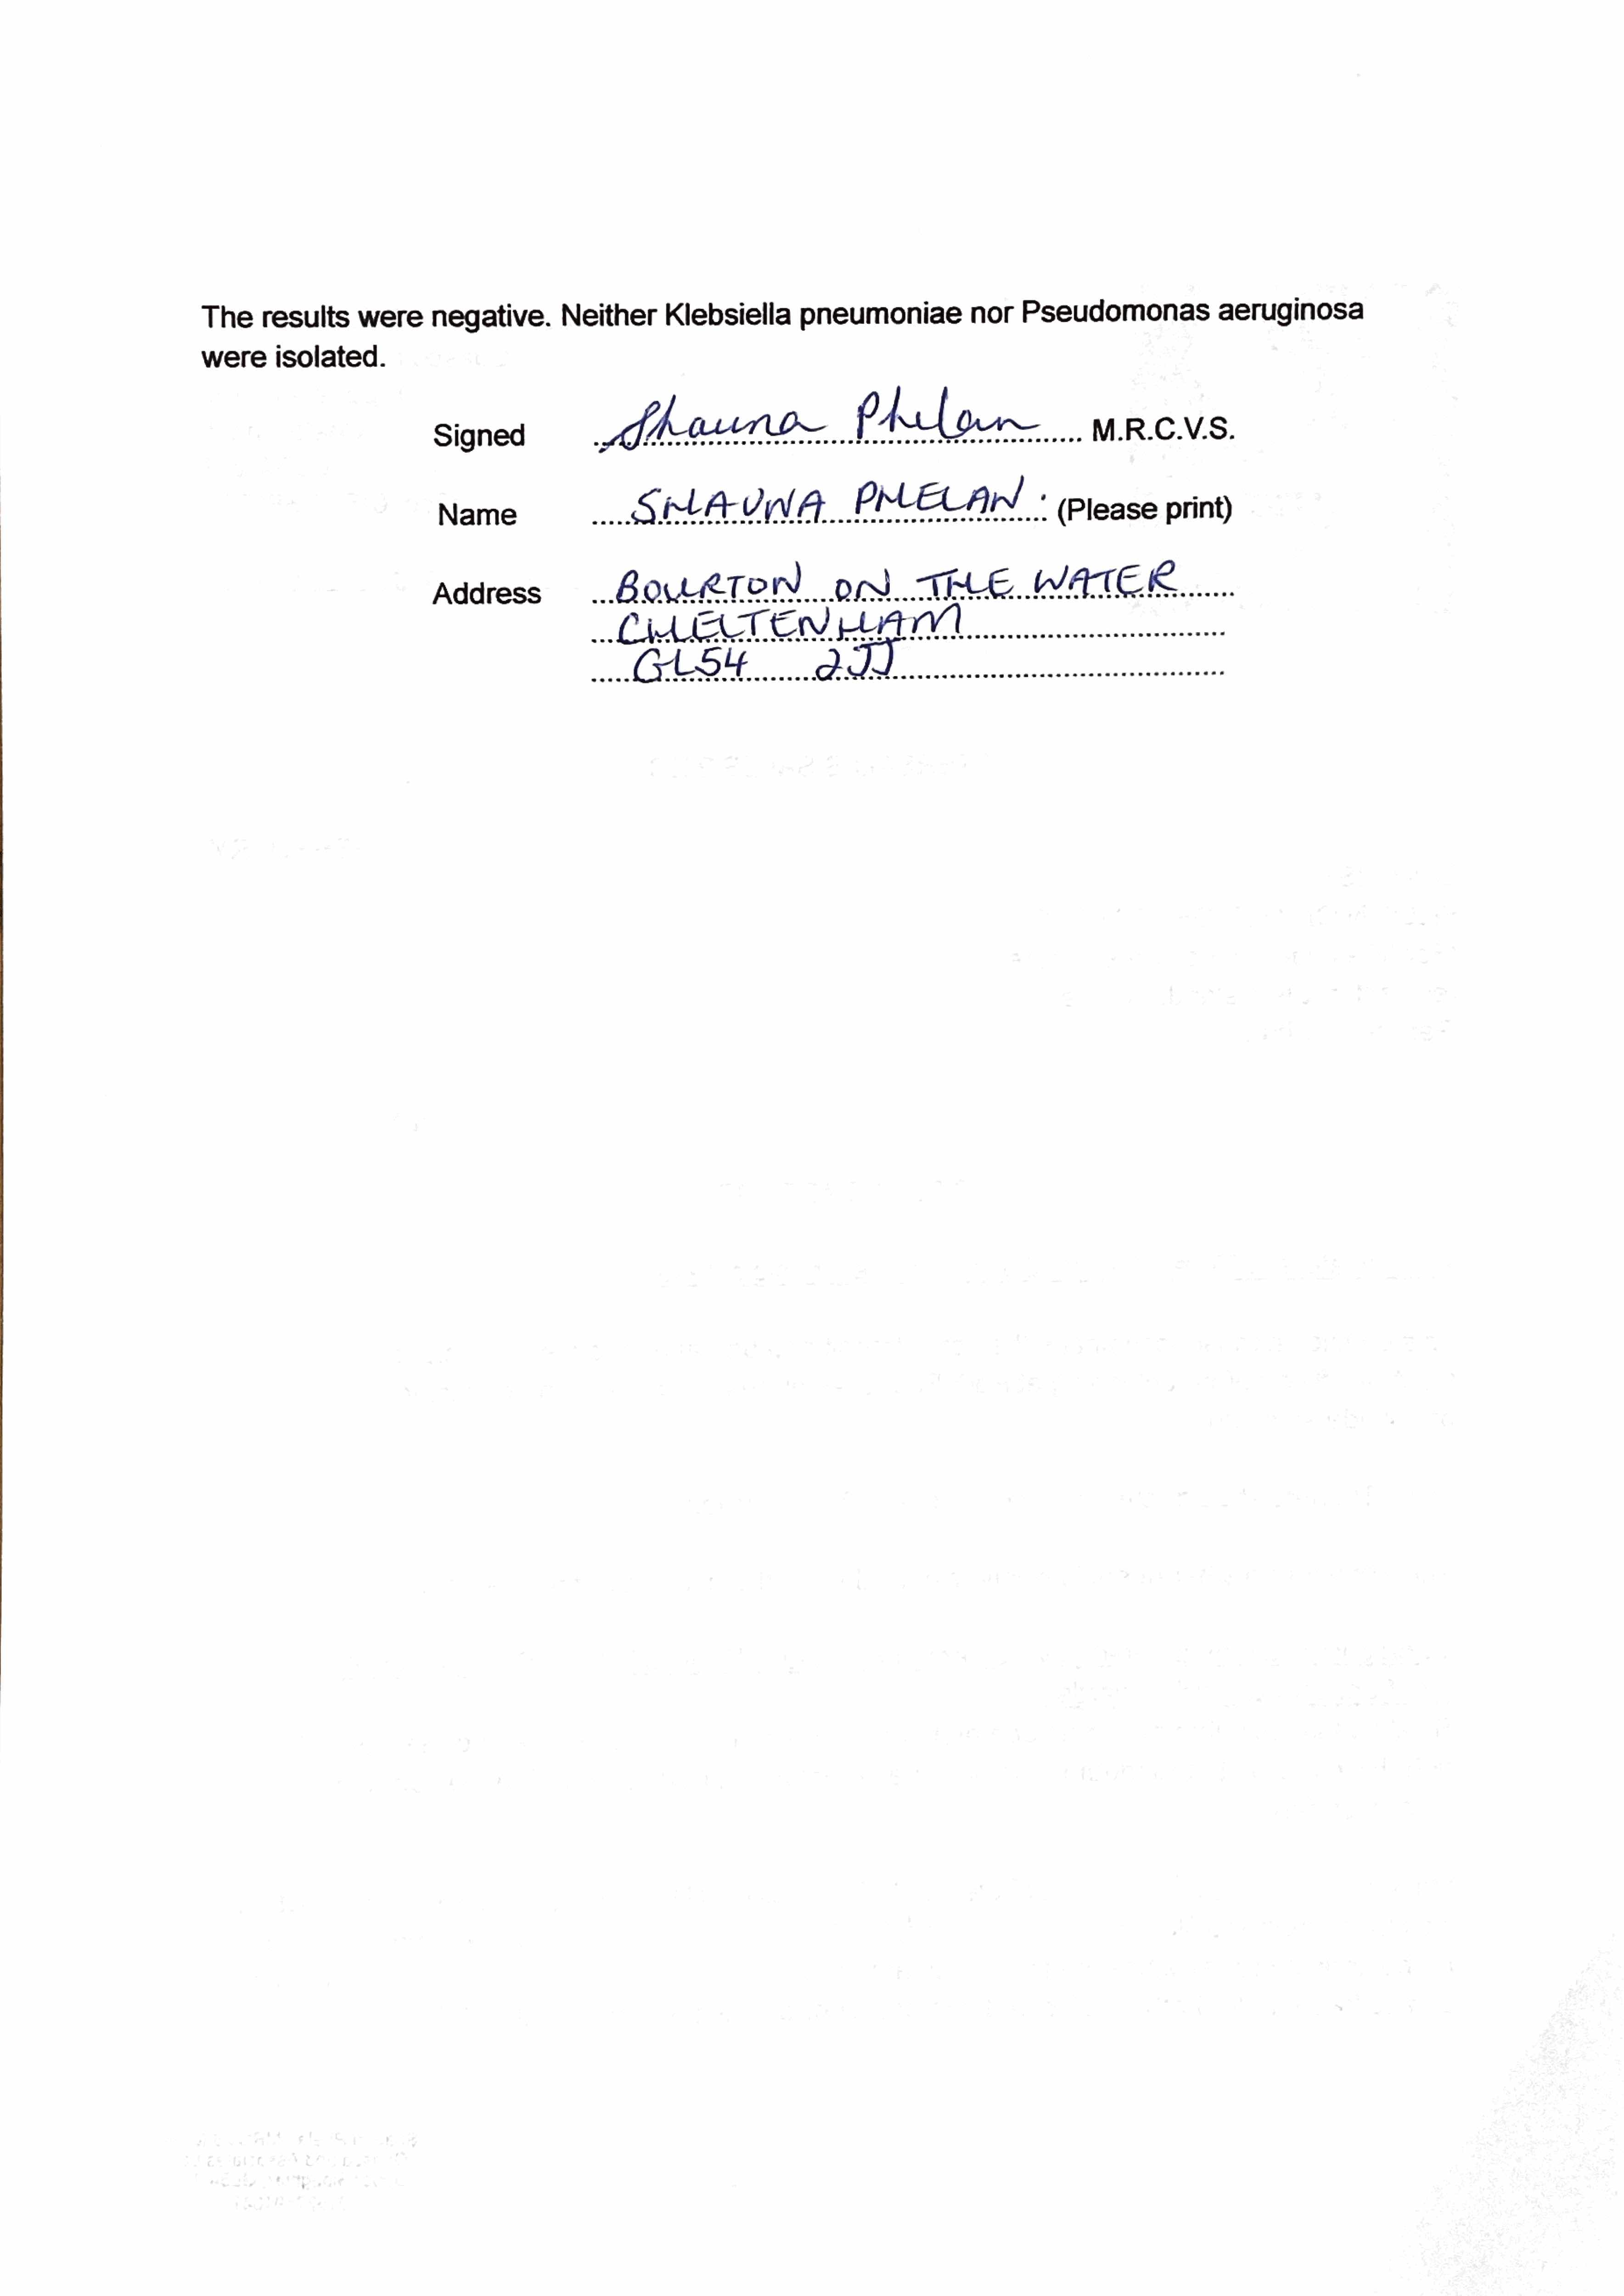 The results were negative. Neither Klebsiella pneumoniae nor Pseudomonas aeruginosa
were isolated.
Signed Shauna Phelan M.R.C.V.S.
Name SHAUNA PHELAN. (Please print)
Address BOURTON ON THE WATER
CHELTENHAM
GL54 2JJ